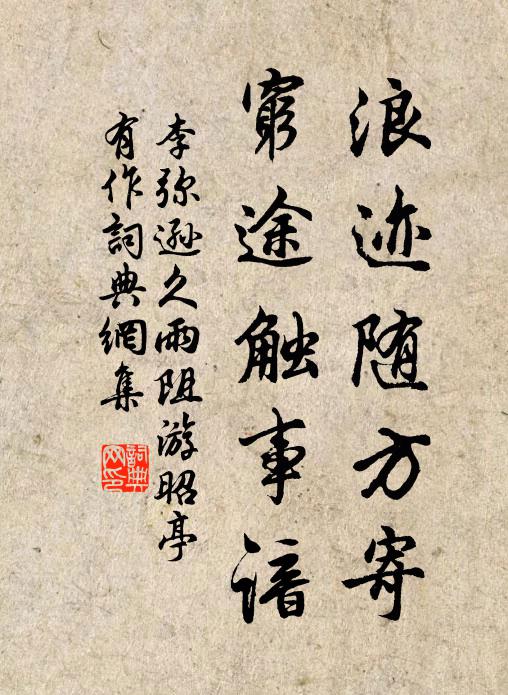 浪迹随方寄
窮途触事谙
李弥遜久雨阻游昭亭
有作詞典網集
詞典网印